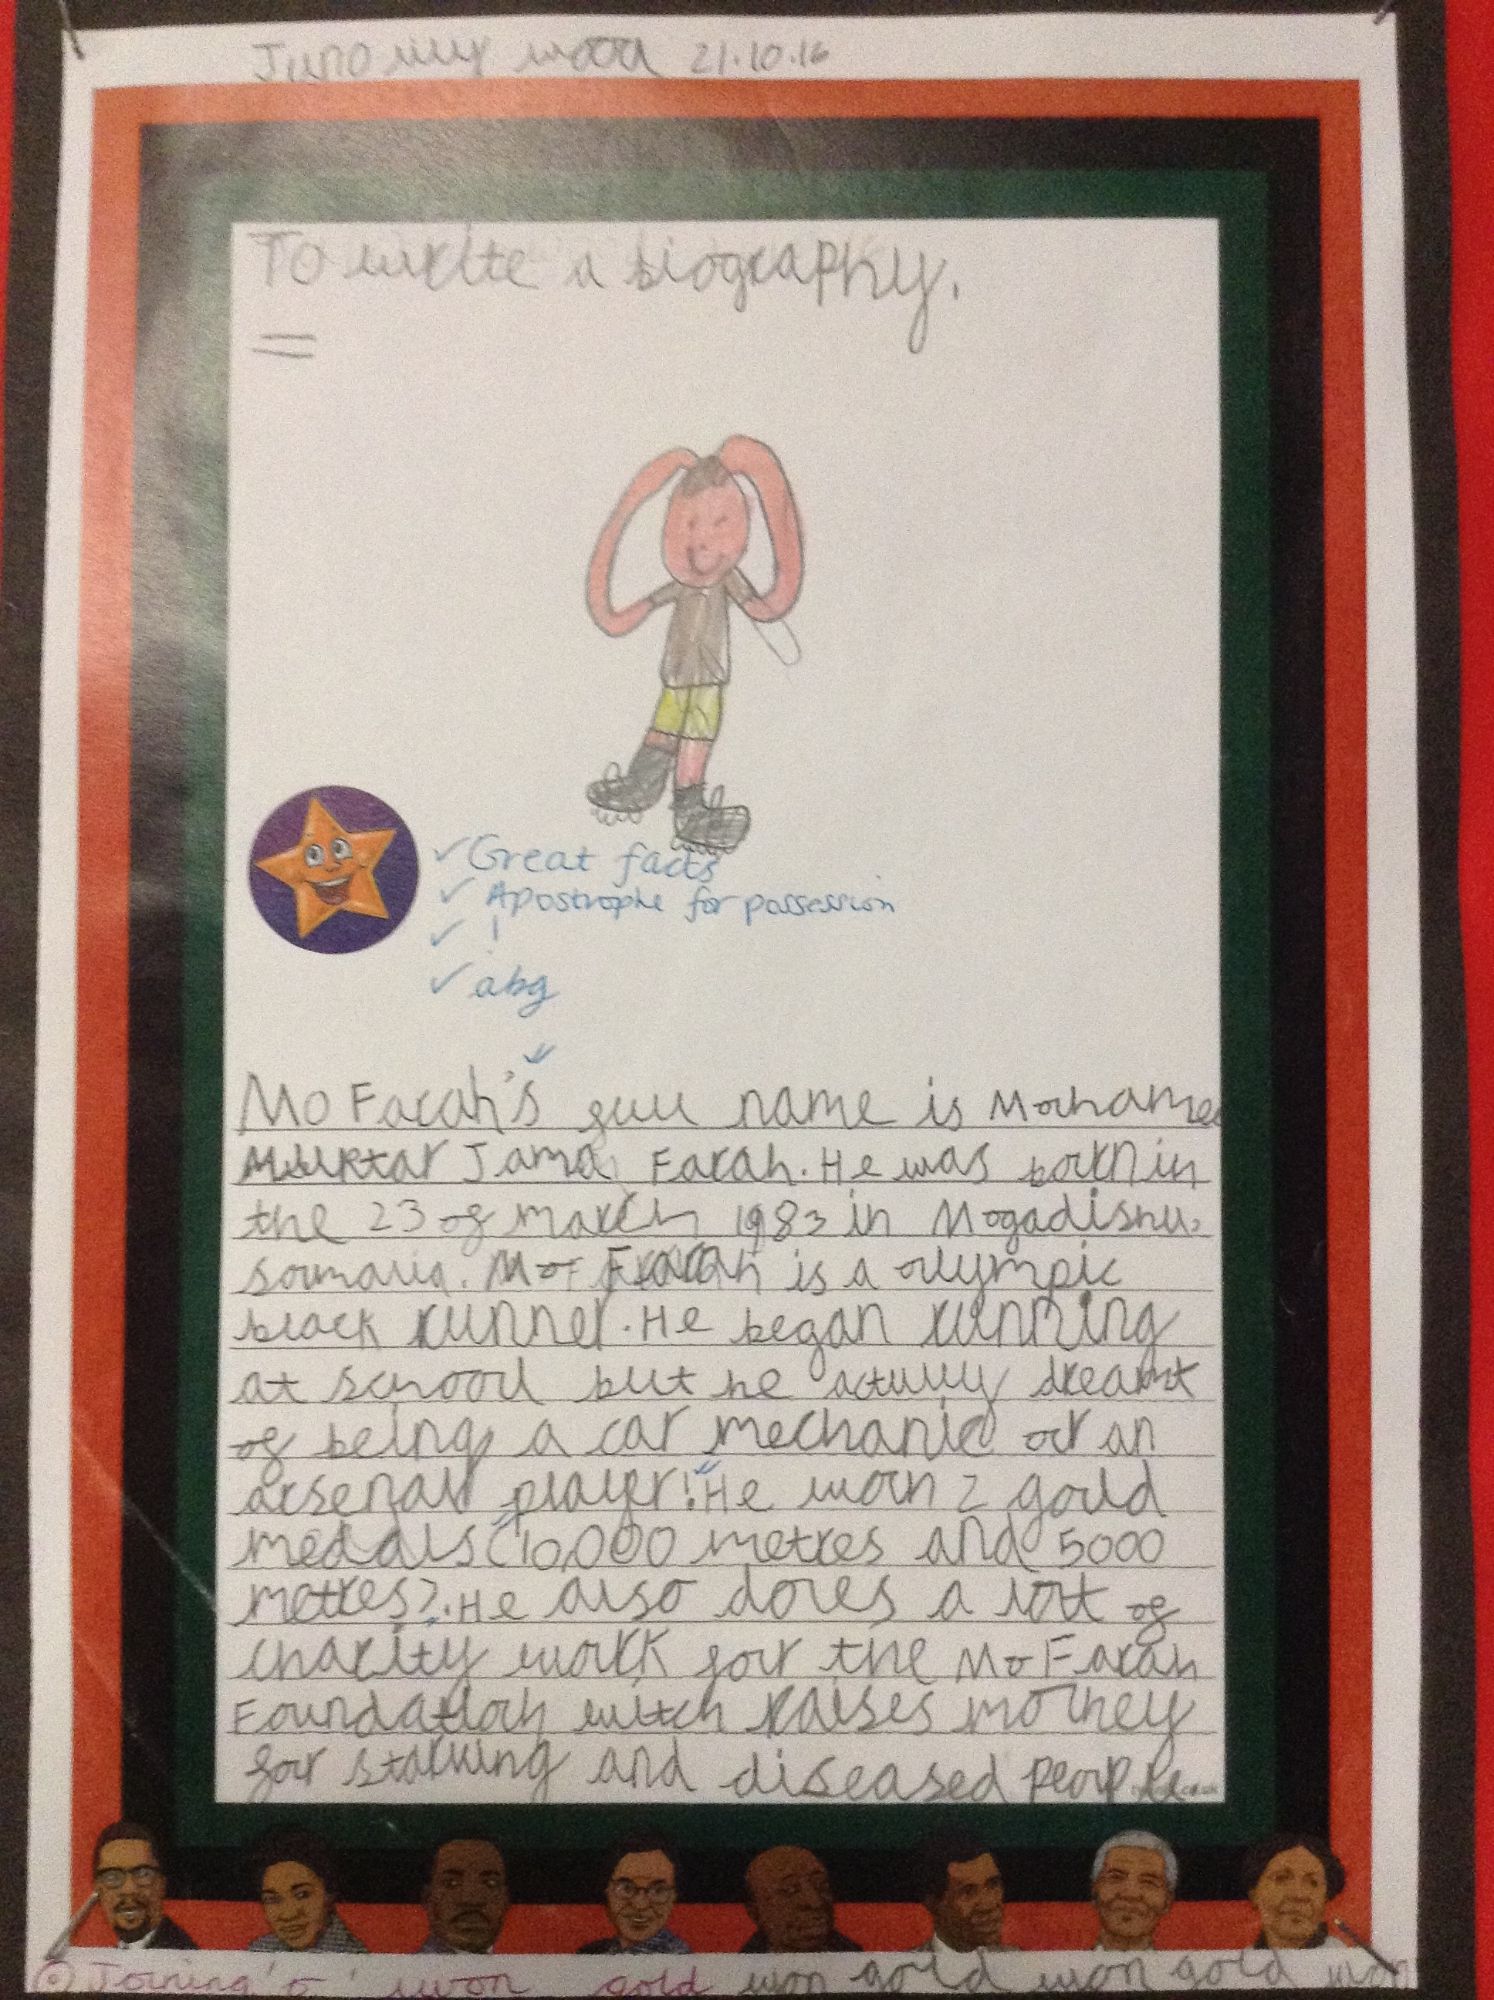 Juno wood 21.10.16
To write a biography.
✓ Great facts
✓ Apostrophe for possession
✓ !
✓ abg
Mo Farah's full name is Mohamed
Muktar Jama Farah. He was born in
the 23 of march 1983 in Mogadishu,
somalia. Mo Farah is a olympic
black runner. He began running
at school but he actully dreamt
of being a car mechanic or an
arsenal player! He won 2 gold
medals (10,000 metres and 5000
metres). He also does a lot of
charity work for the Mo Farah
Foundation witch raises money
for starving and diseased people
Joining 'o' won gold won gold won gold won